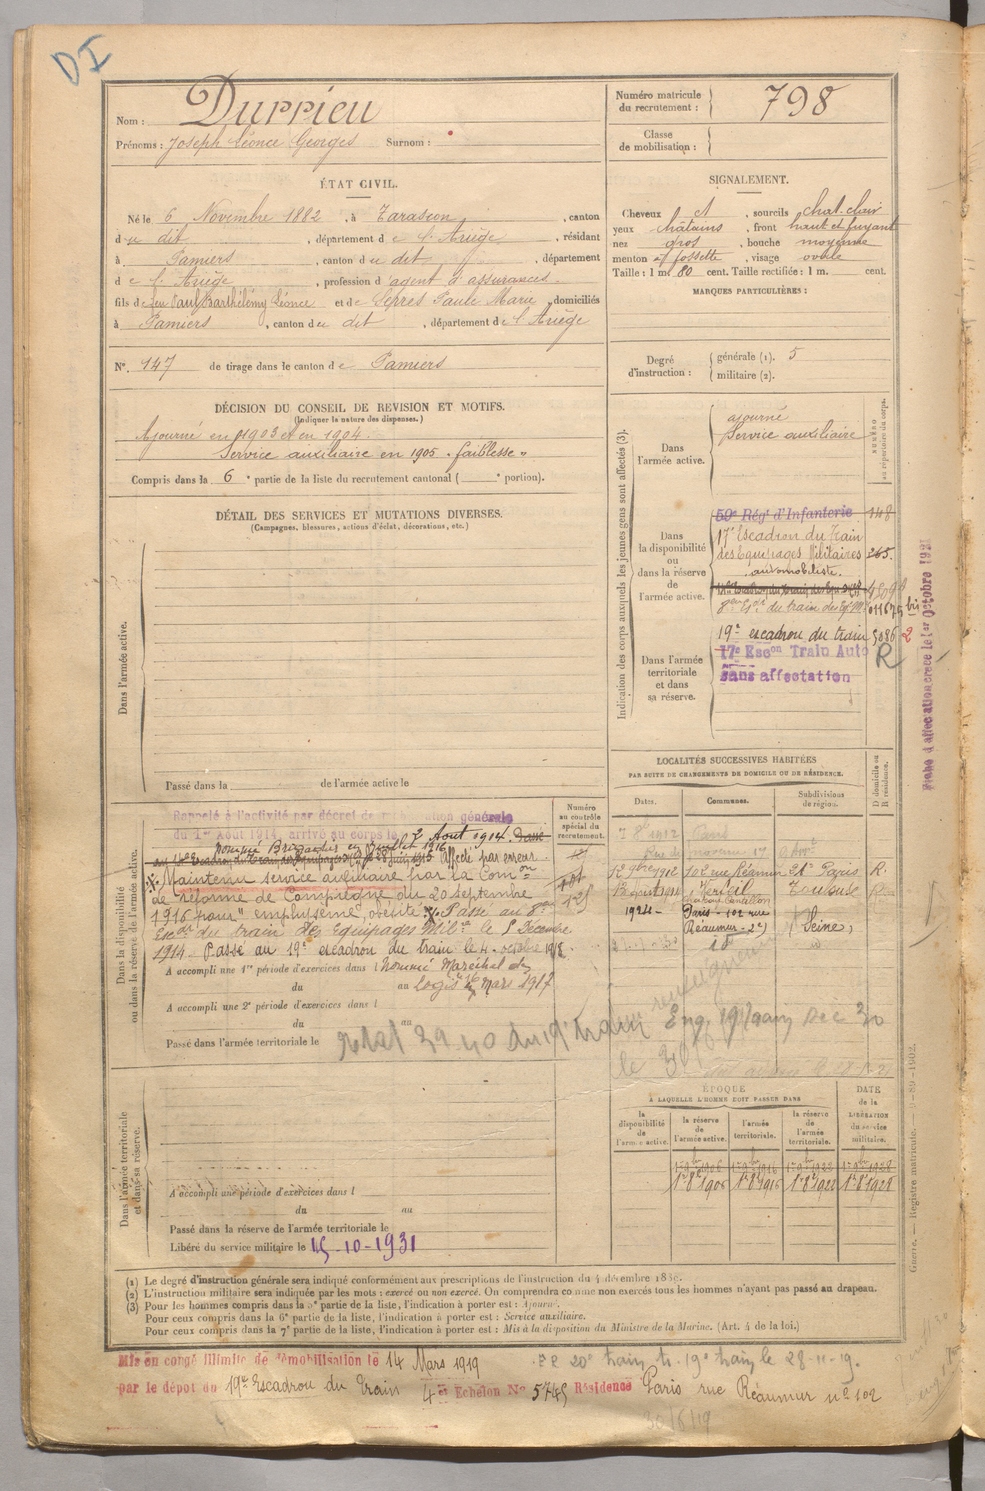 DI
Nom : Durrieu
Prénoms : Joseph Léonce Georges Surnom :
Numéro matricule du recrutement : 798
Classe de mobilisation :
ÉTAT CIVIL.
Né le 6 Novembre 1882, à Tarascon, canton
du dit, département de l'Ariège, résidant
à Pamiers, canton du dit, département
de l'Ariège, profession d'agent d'assurances
fils de feu Paul Barthélémy Léonce et de Serres Paule Marie, domiciliés
à Pamiers, canton du dit, département de l'Ariège
N° 147 de tirage dans le canton de Pamiers
SIGNALEMENT.
Cheveux et, sourcils chat. clair
yeux châtains, front haut et fuyant
nez gros, bouche moyenne
menton à fossette, visage ovale
Taille : 1 m. 80 cent. Taille rectifiée : 1 m. cent.
MARQUES PARTICULIÈRES :
Degré d'instruction : générale (1). 5
militaire (2).
DÉCISION DU CONSEIL DE REVISION ET MOTIFS.
(Indiquer la nature des dispenses.)
Ajourné en 1903 et en 1904.
Service auxiliaire en 1905 « faiblesse »
Compris dans la 6e partie de la liste du recrutement cantonal ( e portion).
DÉTAIL DES SERVICES ET MUTATIONS DIVERSES.
(Campagnes, blessures, actions d'éclat, décorations, etc.)
Dans l'armée active.
Passé dans la de l'armée active le
Indication des corps auxquels les jeunes gens sont affectés (3).
NUMÉRO au répertoire du corps.
Dans l'armée active.
ajourné
Service auxiliaire
Dans la disponibilité ou dans la réserve de l'armée active.
59e Régt d'Infanterie 148
17e Escadron du Train
des Equipages Militaires 265.
automobiliste.
8eme Esc du train des Eq. M. 011679 bis
19e escadron du train 5086 2
Dans l'armée territoriale et dans sa réserve.
17e Escon Train Auto R
sans affectation
Fiche d'affectation créée le 1er Octobre 1921
LOCALITÉS SUCCESSIVES HABITÉES
PAR SUITE DE CHANGEMENTS DE DOMICILE OU DE RÉSIDENCE.
Dates. Communes. Subdivisions de région. D domicile ou R résidence.
7 8e 1912 Paris
12 9bre 1912 102 rue Réaumur Paris R.
1914 Verfeil Toulouse
1924 Paris - 102 rue
Réaumur - 2e) (Seine)
Dans la disponibilité ou dans la réserve de l'armée active.
Numéro au contrôle spécial du recrutement.
Rappelé à l'activité par décret de mobilisation générale
du 1er Août 1914, arrivé au corps le 2 Aout 1914. Passé
nommé Brigadier en Juillet 1916
Affecté par erreur
Maintenu service auxiliaire par la Comon
de réforme de Compiègne du 20 septembre
1916 pour "emphysème, otite". Passé au 8e
Escon du train des Equipages Milres le 1er Décembre
1914. Passé au 19e escadron du train le 4 octobre 1918.
A accompli une 1re période d'exercices dans l nommé Maréchal des
du au logis le 16 Mars 1917
A accompli une 2e période d'exercices dans l
du au
Passé dans l'armée territoriale le
ÉPOQUE
À LAQUELLE L'HOMME DOIT PASSER DANS
DATE de la LIBÉRATION du service militaire.
la disponibilité de l'armée active.
la réserve de l'armée active.
l'armée territoriale.
la réserve de l'armée territoriale.
1er 8e 1906 1er 8e 1916 1er 8e 1922 1er 8e 1928
Dans l'armée territoriale et dans sa réserve.
A accompli une période d'exercices dans l
du au
Passé dans la réserve de l'armée territoriale le
Libéré du service militaire le 15-10-1931
(1) Le degré d'instruction générale sera indiqué conformément aux prescriptions de l'instruction du 4 décembre 1889.
(2) L'instruction militaire sera indiquée par les mots : exercé ou non exercé. On comprendra comme non exercés tous les hommes n'ayant pas passé au drapeau.
(3) Pour les hommes compris dans la 5e partie de la liste, l'indication à porter est : Ajourné.
Pour ceux compris dans la 6e partie de la liste, l'indication à porter est : Service auxiliaire.
Pour ceux compris dans la 7e partie de la liste, l'indication à porter est : Mis à la disposition du Ministre de la Marine. (Art. 4 de la loi.)
Guerre. — Registre matricule.
Mis en congé illimité de démobilisation le 14 Mars 1919
par le dépôt du 19e Escadron du Train 4e Echelon No 5745 Résidence Paris rue Réaumur no 102
20e train tr. 19e train le 28-11-19.
30/6/19